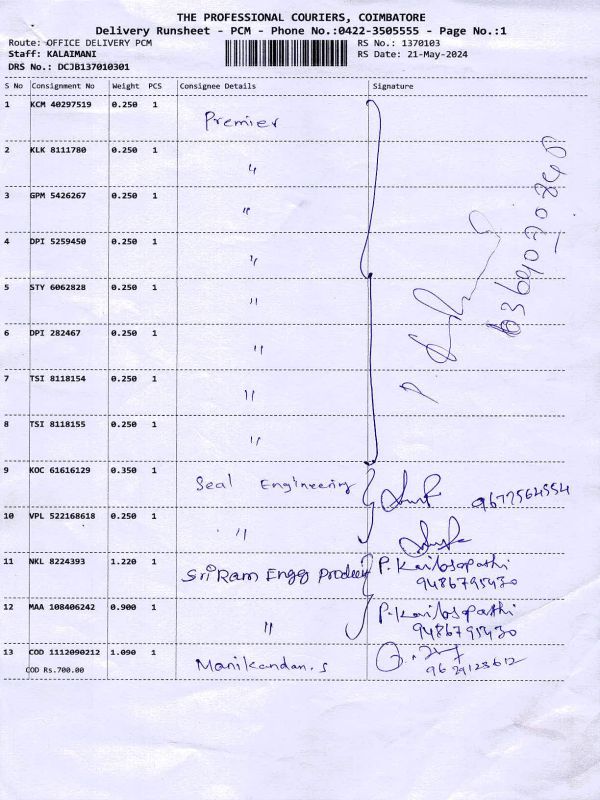 THE PROFESSIONAL COURIERS, COIMBATORE
Delivery Runsheet - PCM - Phone No.:0422-3505555 - Page No.:1
Route: OFFICE DELIVERY PCM
RS No.: 1370103
Staff: KALAIMANI
RS Date: 21-May-2024
DRS No.: DCJB137010301
S No Consignment No Weight PCS Consignee Details Signature
1 KCM 40297519 0.250 1 Premier
2 KLK 8111780 0.250 1 "
3 GPM 5426267 0.250 1 "
4 DPI 5259450 0.250 1 "
5 STY 6062828 0.250 1 "
6 DPI 282467 0.250 1 "
7 TSI 8118154 0.250 1 "
8 TSI 8118155 0.250 1 "
9 KOC 61616129 0.350 1 Seal Engineering 9677564554
10 VPL 522168618 0.250 1 "
11 NKL 8224393 1.220 1 Sri Ram Engg P. Kailasapathi
9486795430
12 MAA 108406242 0.900 1 " P. Kailasapathi
9486795430
13 COD 1112090212 1.090 1 Manikandan.s
COD Rs.700.00 9629128612